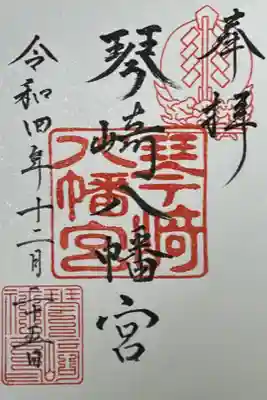 奉拝
琴崎八幡宮
琴崎
八幡宮
令和四年十二月二十五日